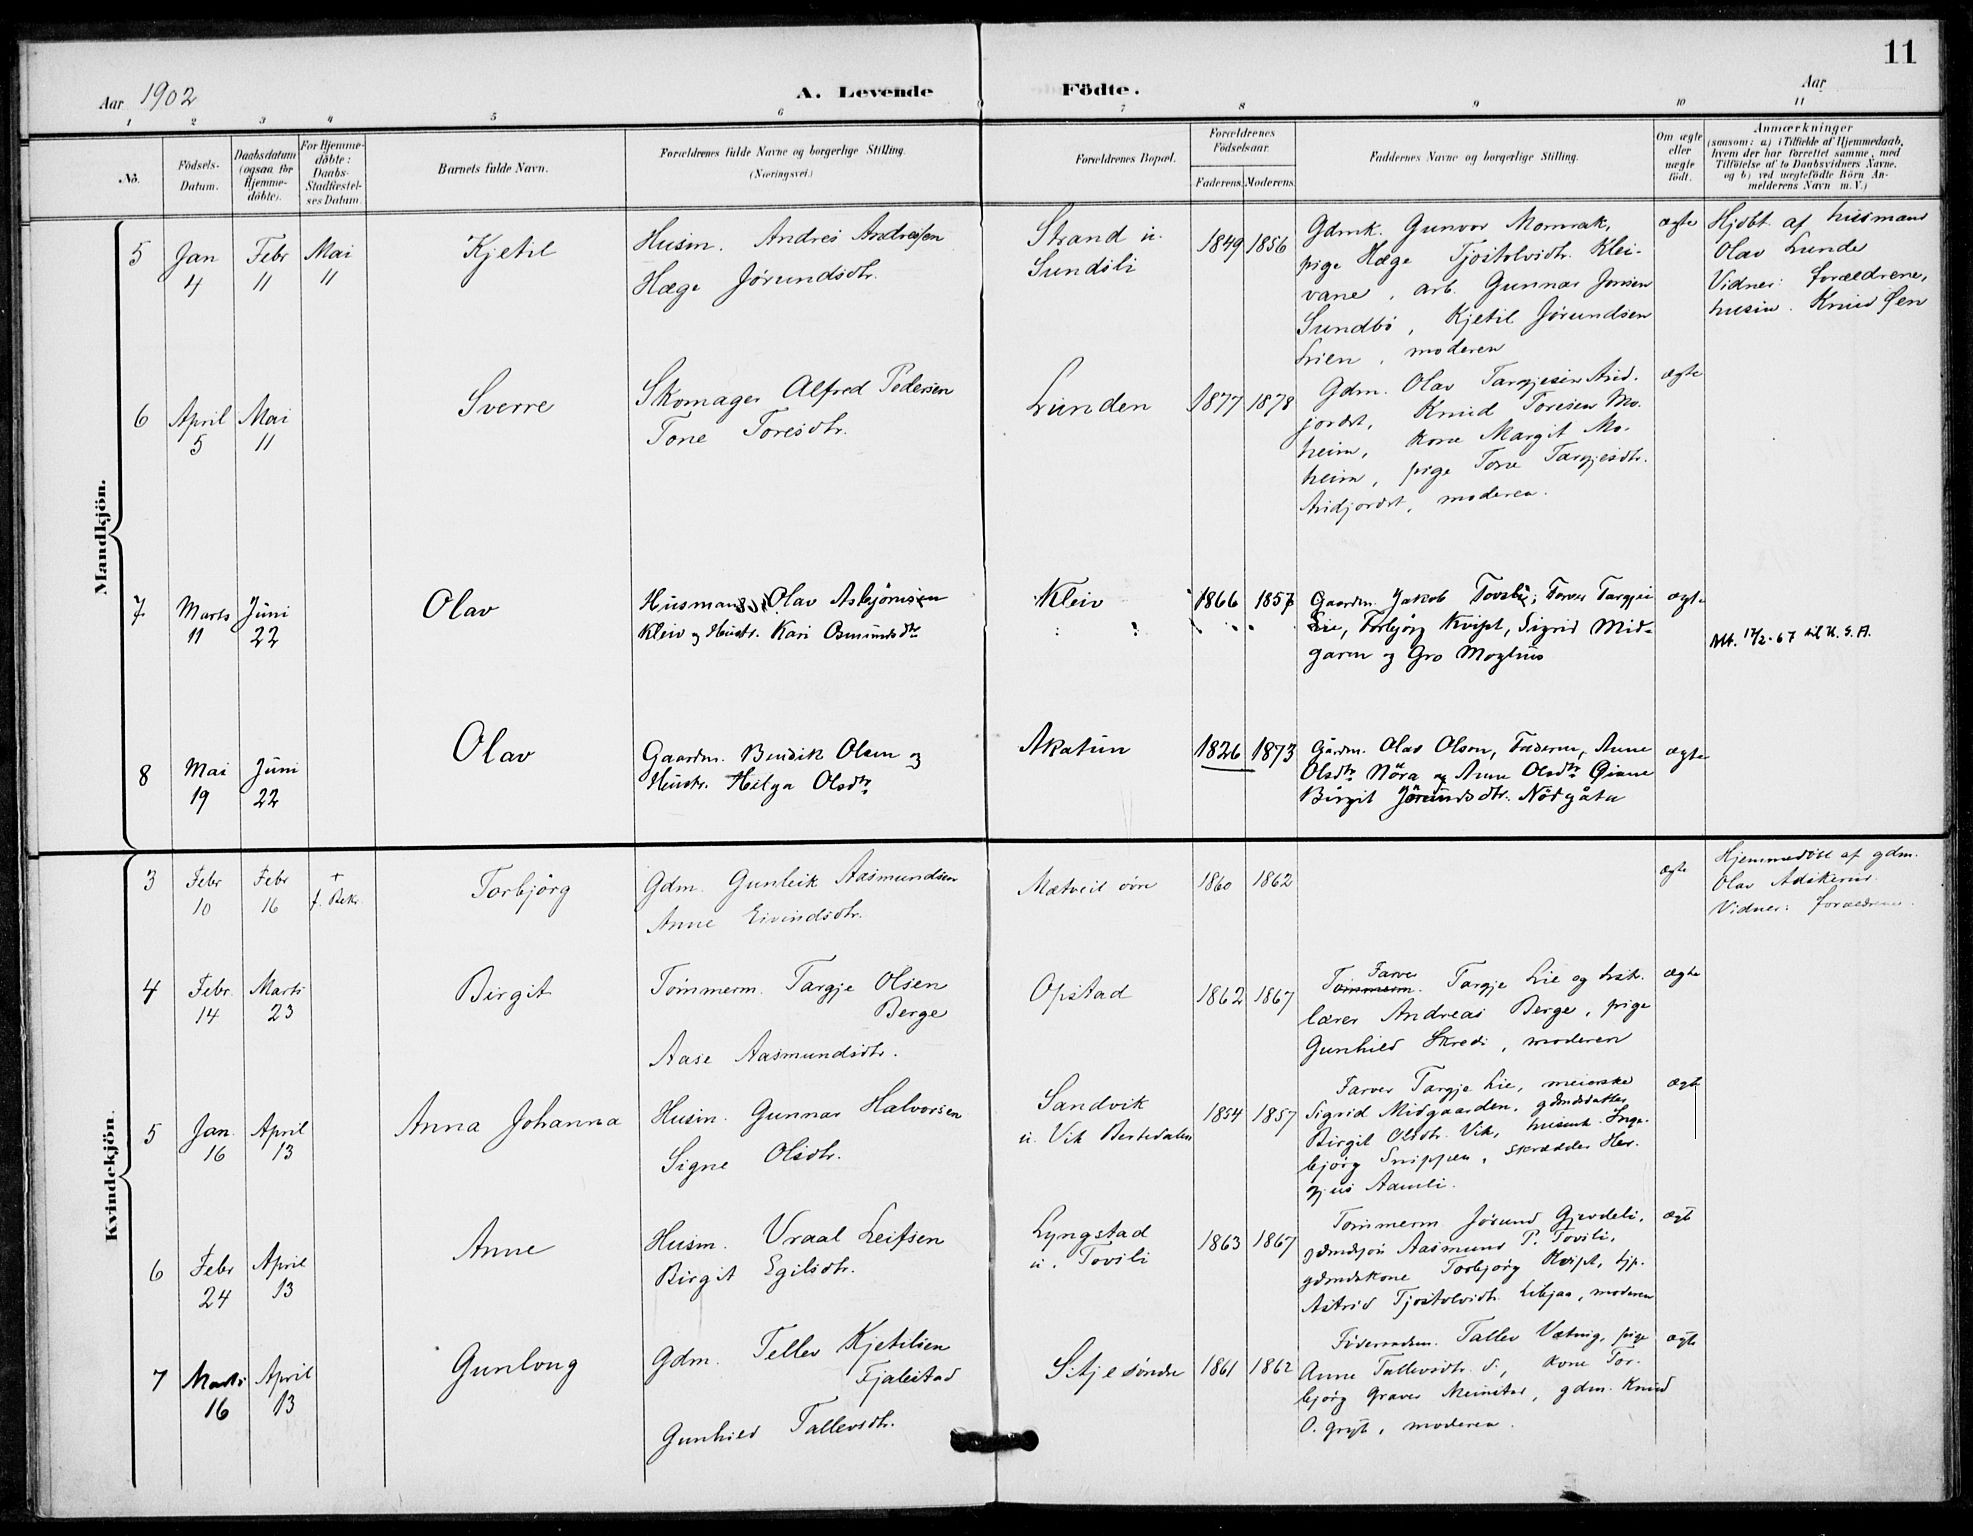 11
Aar 1902
A. Levende Födte.
Aar
1 2 3 4 5 6 7 8 9 10 11
No.
Födsels-Datum.
Daabsdatum (ogsaa for Hjemme-döbte).
For Hjemme-döbte: Daabs-Stadfæstel-ses Datum.
Barnets fulde Navn.
Forældrenes fulde Navne og borgerlige Stilling.
(Næringsvei.)
Forældrenes Bopæl.
Forældrenes Födselsaar.
Faderens. Moderens.
Faddernes Navne og borgerlige Stilling.
Om ægte eller uægte födt.
Anmærkninger
(saasom: a) i Tilfælde af Hjemmedaab, hvem der har forrettet samme, med Tilföielse af to Daabsvidners Navne, og b) ved uægtefödte Börn An-melderens Navn m. V.)
Mandkjön.
5 Jan 4 Febr 11 Mai 11
Kjetil
Husm. Andres Andresen
Hæge Jørundsdtr.
Strand u.
Sundsli
1849 1856
Gdmk. Gunvor Momrak,
pige Hæge Tjostolvsdtr. Klei-
vane, arb. Gunnar Jonsen
Sundbø, Kjetil Jørundsen
Lien, moderen
ægte
Hjdbt. af husmand
Olav Lunde
Vidner: forældrene,
husm. Knud Øen
6 April 5 Mai 11
Sverre
Skomager Alfred Pedersen
Tone Toresdtr.
Lunden
1877 1878
Gdm. Olav Targjesen Arid-
jordet, Knud Toresen Mo-
heim, kone Margit Mo-
heim, pige Tone Targjesdtr.
Aridjordet, moderen.
ægte
7 Marts 11 Juni 22
Olav
Husmand Olav Asbjørnsen
Kleiv og Hustr. Kari Osmundsdtr
Kleiv
1866 1857
Gaardm. Jakob Tovsli, Farver Targjei
Lie, Torbjørg Kvipt, Sigrid Mid-
garen og Gro Moghus
ægte
Att. 17/2-67 til U.S.A.
8 Mai 19 Juni 22
Olav
Gaardm. Bendik Olsen og
Hustr. Helga Olsdtr
Akatun
1826 1873
Gårdm. Olav Olson, Faderen, Anne
Olsdtr Nöra og Anne Olsdtr
Birgit Jörundsdtr. Nödgåta
ægte
Kvindekjön.
3 Febr 10 Febr 16 + f. Bekr.
Torbjörg
Gdm. Gunleik Aasmundsen
Anne Eivindsdtr.
Mætveit övre
1860 1862
ægte
Hjemmedöbt af gdm.
Olav Adskerud.
Vidner: forældrene.
4 Febr. 14 Marts 23
Birgit
Tømmerm. Targje Olsen
Berge
Aase Aasmundsdtr.
Opstad
1862 1867
Farver
Tømmerm. Targje Lie og
lærer Andreas Berge, pige
Gunhild Skredi, moderen
ægte
5 Jan. 16 April 13
Anna Johanna
Husm. Gunnar Halvorsen
Signe Olsdtr.
Sandvik
u. Vik Bertedalen
1854 1857
Farver Targje Lie, meierske
Sigrid Midgaarden, gdmdsdatter
Birgit Olsdtr. Vik, husmk. Inge-
björg Snippen, skrædder Her-
gjus Aamli.
ægte
6 Febr 24 April 13
Anne
Husm. Vraal Leifsen
Birgit Egilsdtr.
Lyngstad
u. Tovsli
1863 1867
Tømmerm. Jørund Gjevdeli,
gdmdsøn Aasmund P. Tovsli,
gdmdskone Torbjørg Kvipt, tjp.
Astrid Tjostolvsdtr. Libjaa, moderen
ægte
7 Marts 16 April 13
Gunloug
Gdm. Tellev Kjetilsen
Fjalestad
Gunhild Tallevsdtr.
Sitje söndre
1861 1862
Föderaadsm. Tallev Vætnig, pige
Anne Tallevsdtr. S., kone Tor-
bjørg Graver Meinstad, gdm. Knud
O. Grigt, moderen.
ægte